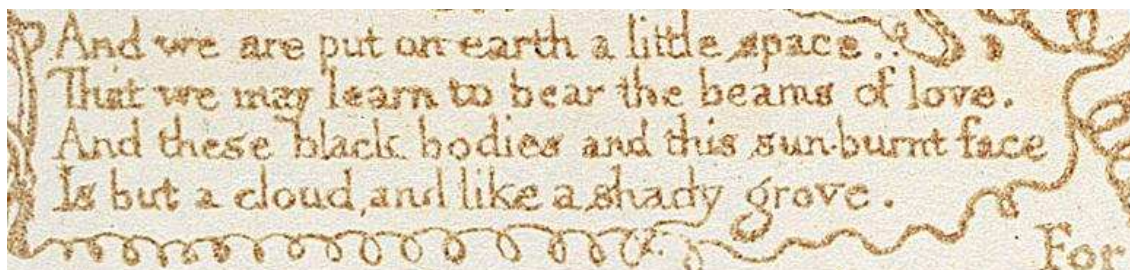 And we are put on earth a little space.
That we may learn to bear the beams of love.
And these black bodies and this sun-burnt face
Is but a cloud, and like a shady grove.
For